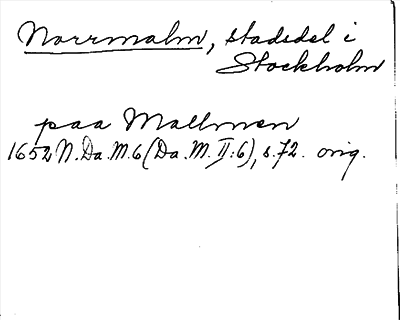 Norrmalm, stadsdel i
Stockholm
paa Mallmen
1652 N.Da.M.6 (Da.M.II:6), s.72. orig.